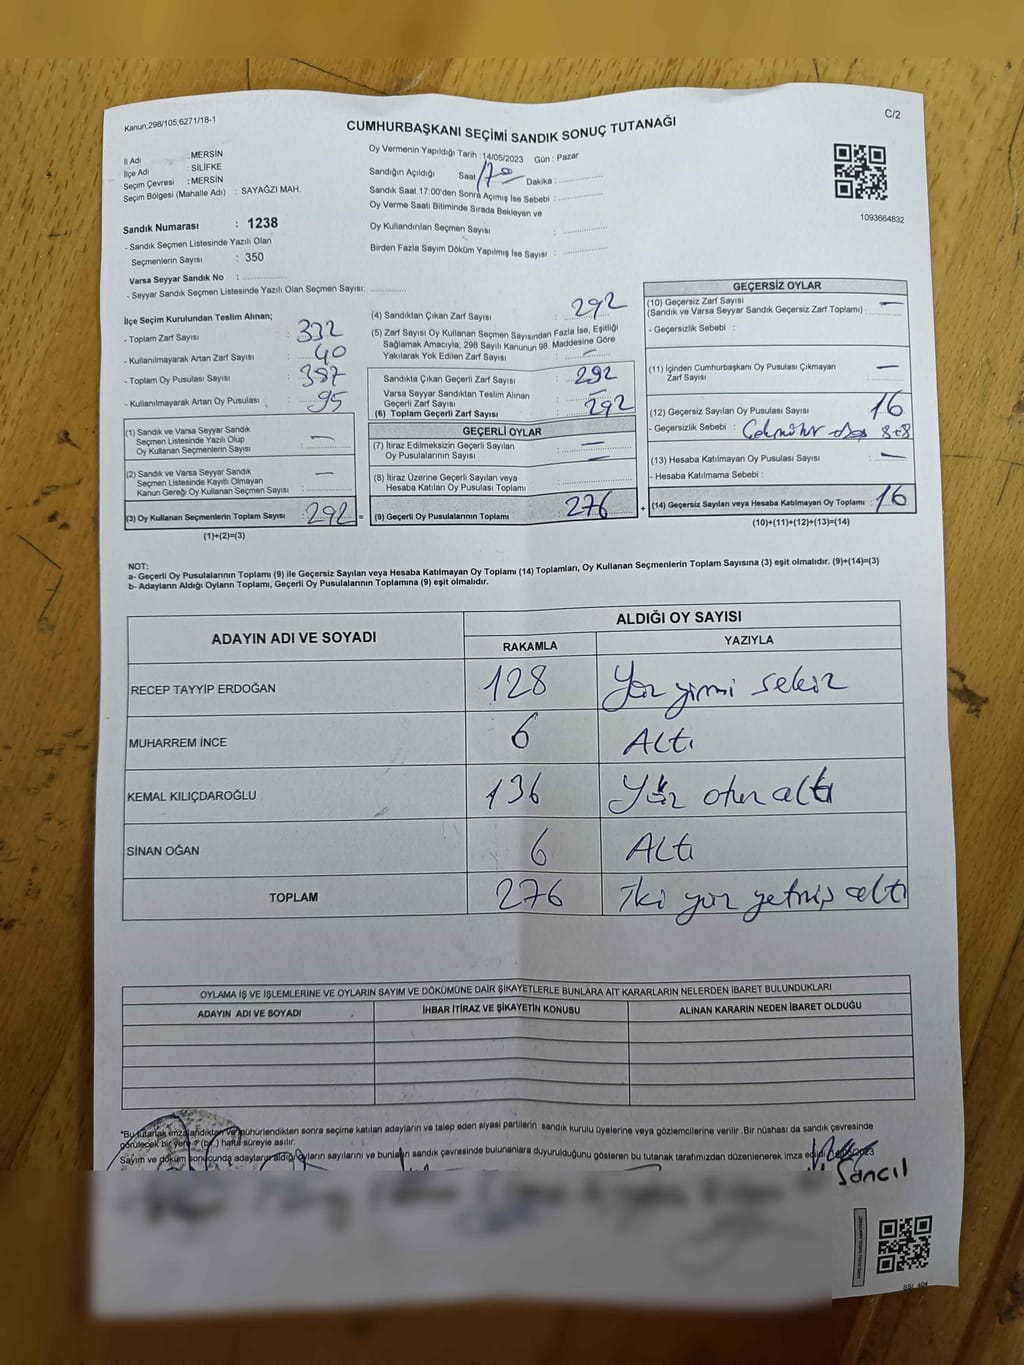 Kanun;298/105;6271/18-1
C/2
CUMHURBAŞKANI SEÇİMİ SANDIK SONUÇ TUTANAĞI
İl Adı : MERSİN
İlçe Adı : SİLİFKE
Seçim Çevresi : MERSİN
Seçim Bölgesi (Mahalle Adı) : SAYAĞZI MAH.
Sandık Numarası : 1238
- Sandık Seçmen Listesinde Yazılı Olan
Seçmenlerin Sayısı : 350
Varsa Seyyar Sandık No :
- Seyyar Sandık Seçmen Listesinde Yazılı Olan Seçmen Sayısı:
Oy Vermenin Yapıldığı Tarih : 14/05/2023 Gün : Pazar
Sandığın Açıldığı Saat 17 00 Dakika :
Sandık Saat 17:00'den Sonra Açımış İse Sebebi :
Oy Verme Saati Bitiminde Sırada Bekleyen ve
Oy Kullandırılan Seçmen Sayısı :
Birden Fazla Sayım Döküm Yapılmış İse Sayısı :
1093664832
İlçe Seçim Kurulundan Teslim Alınan;
- Toplam Zarf Sayısı : 332
- Kullanılmayarak Artan Zarf Sayısı : 40
- Toplam Oy Pusulası Sayısı : 387
- Kullanılmayarak Artan Oy Pusulası : 95
(1) Sandık ve Varsa Seyyar Sandık
Seçmen Listesinde Yazılı Olup
Oy Kullanan Seçmenlerin Sayısı : —
(2) Sandık ve Varsa Seyyar Sandık
Seçmen Listesinde Kayıtlı Olmayan
Kanun Gereği Oy Kullanan Seçmen Sayısı : —
(3) Oy Kullanan Seçmenlerin Toplam Sayısı : 292 =
(1)+(2)=(3)
(4) Sandıktan Çıkan Zarf Sayısı : 292
(5) Zarf Sayısı Oy Kullanan Seçmen Sayısından Fazla İse, Eşitliği
Sağlamak Amacıyla; 298 Sayılı Kanunun 98. Maddesine Göre
Yakılarak Yok Edilen Zarf Sayısı : —
Sandıkta Çıkan Geçerli Zarf Sayısı : 292
Varsa Seyyar Sandıktan Teslim Alınan
Geçerli Zarf Sayısı : —
(6) Toplam Geçerli Zarf Sayısı : 292
GEÇERLİ OYLAR
(7) İtiraz Edilmeksizin Geçerli Sayılan
Oy Pusulalarının Sayısı : —
(8) İtiraz Üzerine Geçerli Sayılan veya
Hesaba Katılan Oy Pusulası Toplamı : —
(9) Geçerli Oy Pusulalarının Toplamı : 276 +
GEÇERSİZ OYLAR
(10) Geçersiz Zarf Sayısı
(Sandık ve Varsa Seyyar Sandık Geçersiz Zarf Toplamı) : —
- Geçersizlik Sebebi :
(11) İçinden Cumhurbaşkanı Oy Pusulası Çıkmayan
Zarf Sayısı : —
(12) Geçersiz Sayılan Oy Pusulası Sayısı : 16
- Geçersizlik Sebebi : 8+8
(13) Hesaba Katılmayan Oy Pusulası Sayısı : —
- Hesaba Katılmama Sebebi :
(14) Geçersiz Sayılan veya Hesaba Katılmayan Oy Toplamı : 16
(10)+(11)+(12)+(13)=(14)
NOT:
a- Geçerli Oy Pusulalarının Toplamı (9) ile Geçersiz Sayılan veya Hesaba Katılmayan Oy Toplamı (14) Toplamları, Oy Kullanan Seçmenlerin Toplam Sayısına (3) eşit olmalıdır. (9)+(14)=(3)
b- Adayların Aldığı Oyların Toplamı, Geçerli Oy Pusulalarının Toplamına (9) eşit olmalıdır.
ADAYIN ADI VE SOYADI ALDIĞI OY SAYISI
RAKAMLA YAZIYLA
RECEP TAYYİP ERDOĞAN 128 Yüz yirmi sekiz
MUHARREM İNCE 6 Altı
KEMAL KILIÇDAROĞLU 136 Yüz otuz altı
SİNAN OĞAN 6 Altı
TOPLAM 276 İki yüz yetmiş altı
OYLAMA İŞ VE İŞLEMLERİNE VE OYLARIN SAYIM VE DÖKÜMÜNE DAİR ŞİKAYETLERLE BUNLARA AİT KARARLARIN NELERDEN İBARET BULUNDUKLARI
ADAYIN ADI VE SOYADI İHBAR İTİRAZ VE ŞİKAYETİN KONUSU ALINAN KARARIN NEDEN İBARET OLDUĞU
*Bu tutanak imzalandıktan ve mühürlendikten sonra seçime katılan adayların ve talep eden siyasi partilerin sandık kurulu üyelerine veya gözlemcilerine verilir .Bir nüshası da sandık çevresinde
görülecek bir yere 1 (bir) hafta süreyle asılır.
Sayım ve döküm sonucunda adayların aldığı oyların sayılarını ve bunların sandık çevresinde bulunanlara duyurulduğunu gösteren bu tutanak tarafımızdan düzenlenerek imza edildi
Sancıl